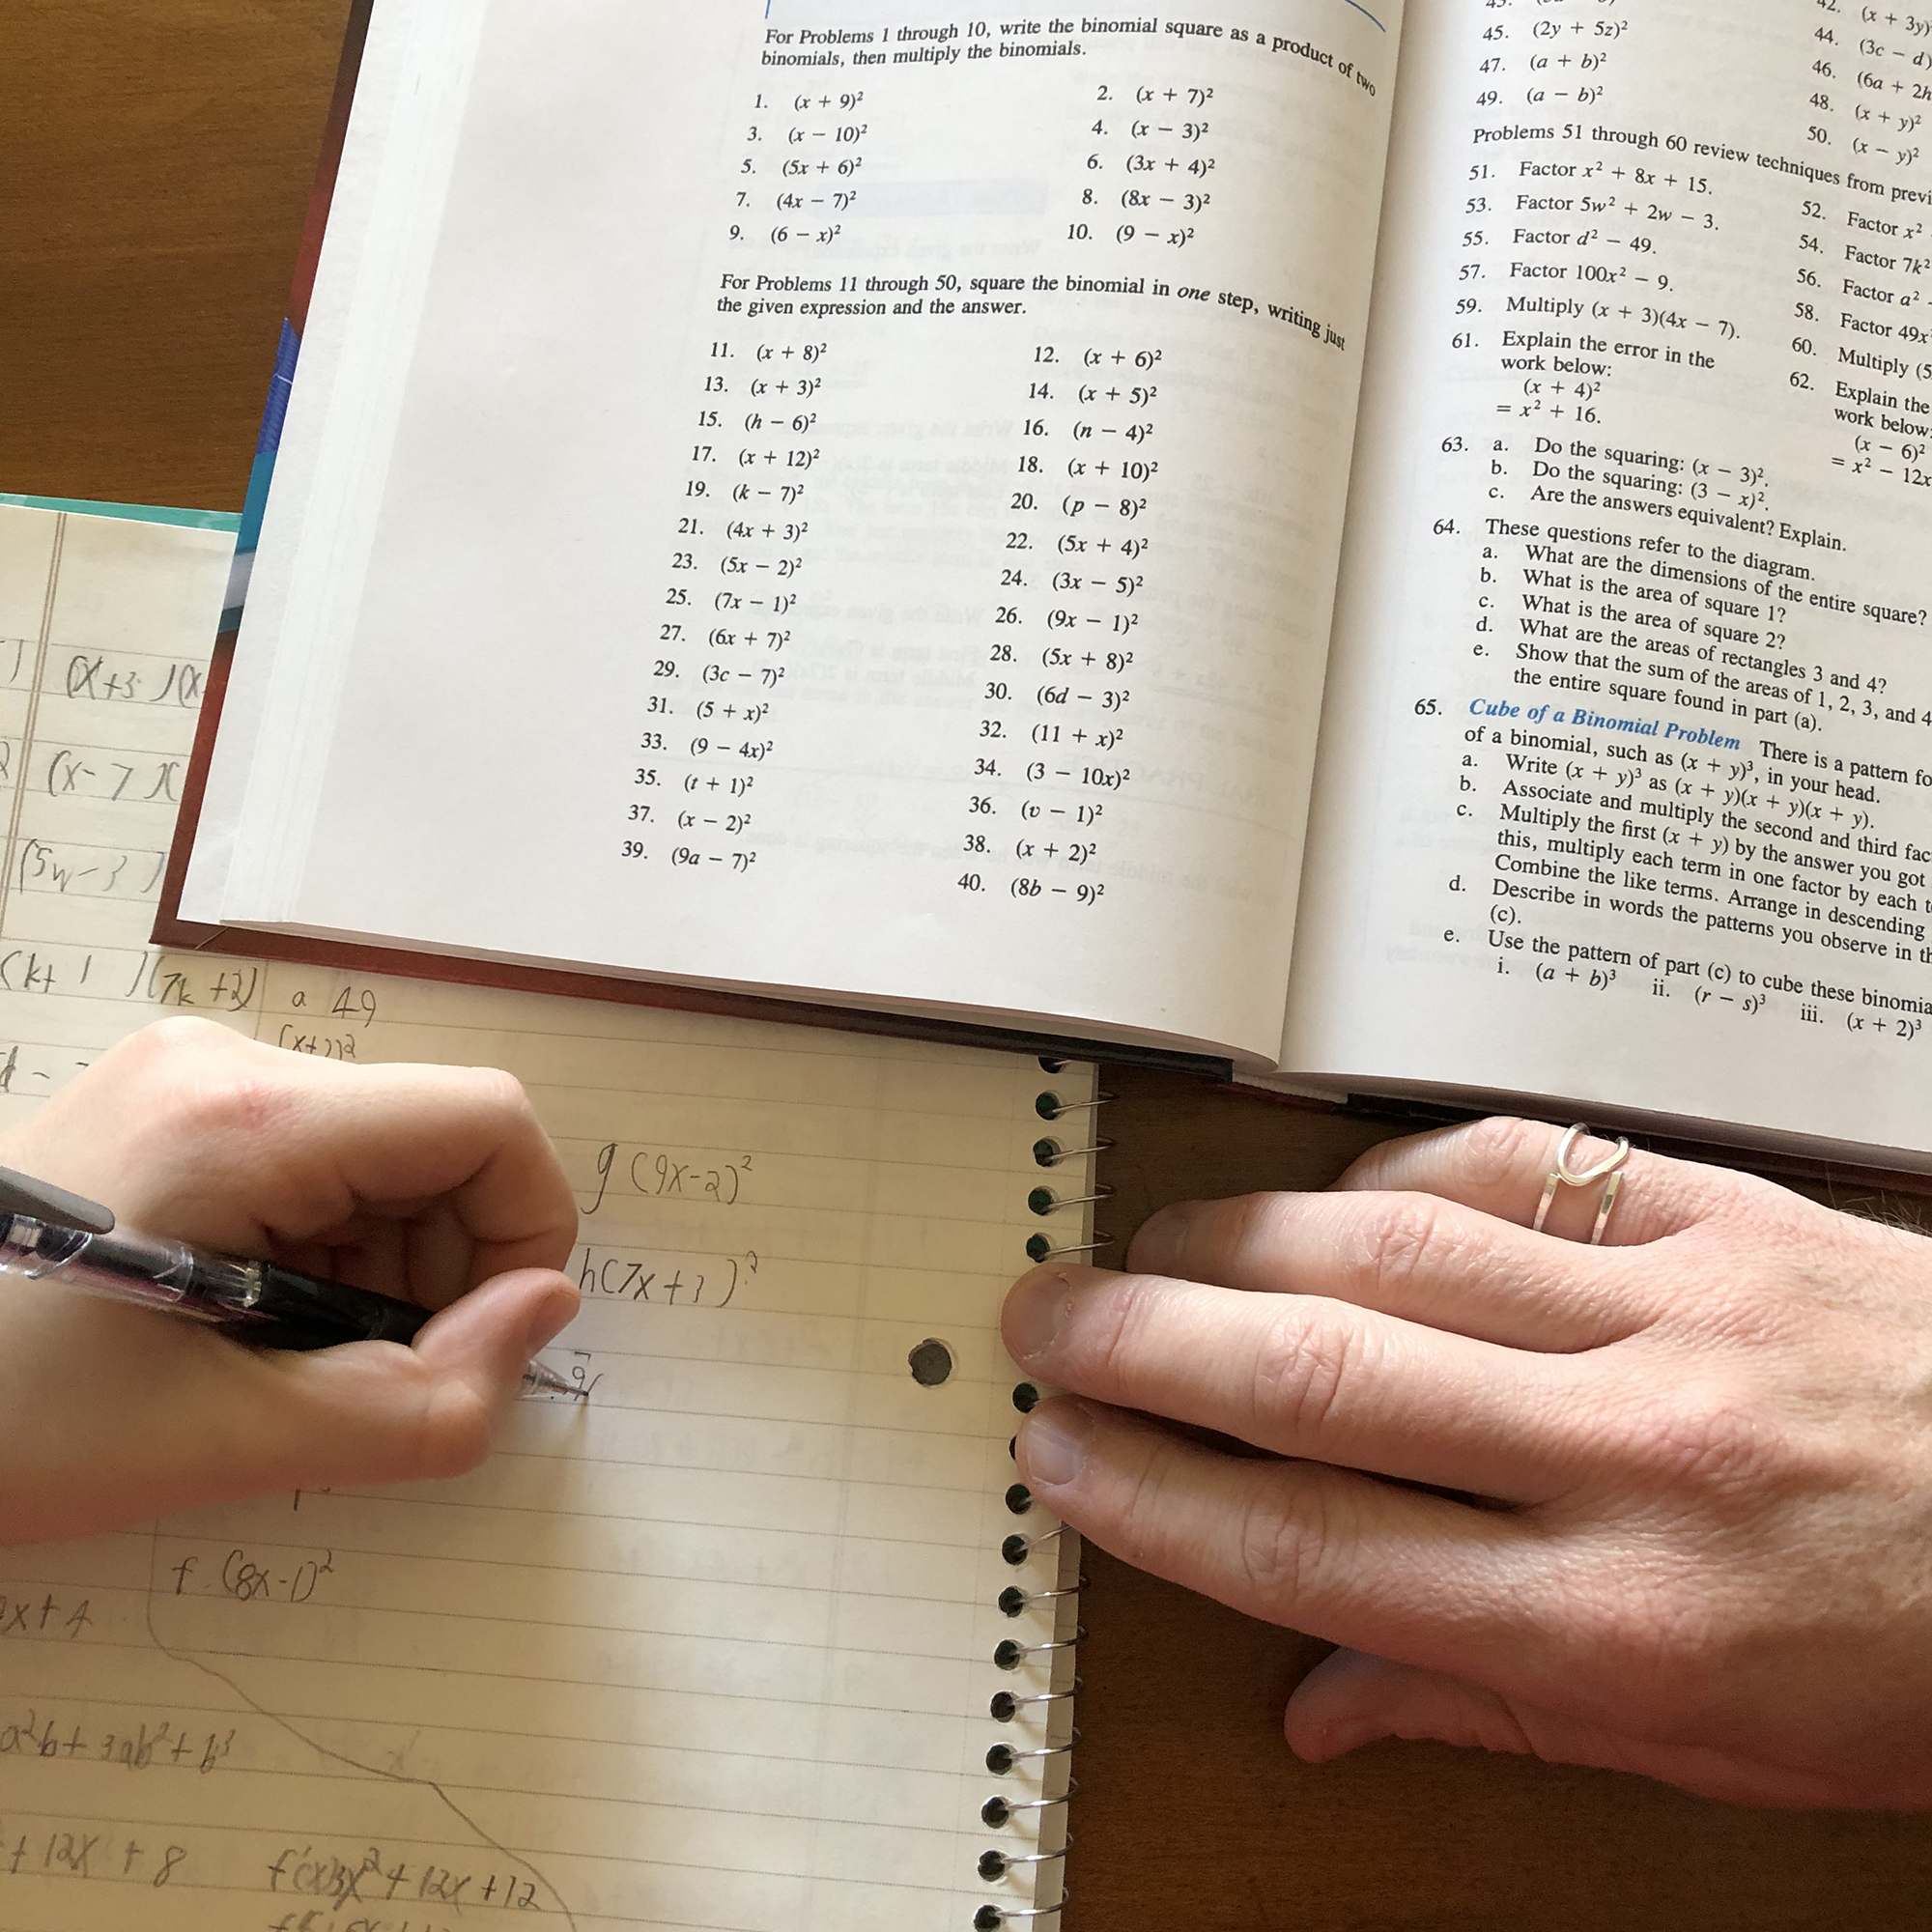 For Problems 1 through 10, write the binomial square as a product of two
binomials, then multiply the binomials.
1. (x + 9)²
2. (x + 7)²
3. (x − 10)²
4. (x − 3)²
5. (5x + 6)²
6. (3x + 4)²
7. (4x − 7)²
8. (8x − 3)²
9. (6 − x)²
10. (9 − x)²
For Problems 11 through 50, square the binomial in one step, writing just
the given expression and the answer.
11. (x + 8)²
12. (x + 6)²
13. (x + 3)²
14. (x + 5)²
15. (h − 6)²
16. (n − 4)²
17. (x + 12)²
18. (x + 10)²
19. (k − 7)²
20. (p − 8)²
21. (4x + 3)²
22. (5x + 4)²
23. (5x − 2)²
24. (3x − 5)²
25. (7x − 1)²
26. (9x − 1)²
27. (6x + 7)²
28. (5x + 8)²
29. (3c − 7)²
30. (6d − 3)²
31. (5 + x)²
32. (11 + x)²
33. (9 − 4x)²
34. (3 − 10x)²
35. (t + 1)²
36. (v − 1)²
37. (x − 2)²
38. (x + 2)²
39. (9a − 7)²
40. (8b − 9)²
42. (x + 3y)
45. (2y + 5z)²
44. (3c − d)
47. (a + b)²
46. (6a + 2h
49. (a − b)²
48. (x + y)²
50. (x − y)²
Problems 51 through 60 review techniques from previ
51. Factor x² + 8x + 15.
52. Factor x²
53. Factor 5w² + 2w − 3.
54. Factor 7k²
55. Factor d² − 49.
56. Factor a²
57. Factor 100x² − 9.
58. Factor 49x
59. Multiply (x + 3)(4x − 7).
60. Multiply (5
61. Explain the error in the
work below:
(x + 4)²
= x² + 16.
62. Explain the
work below:
(x − 6)²
= x² − 12x
63. a. Do the squaring: (x − 3)².
b. Do the squaring: (3 − x)².
c. Are the answers equivalent? Explain.
64. These questions refer to the diagram.
a. What are the dimensions of the entire square?
b. What is the area of square 1?
c. What is the area of square 2?
d. What are the areas of rectangles 3 and 4?
e. Show that the sum of the areas of 1, 2, 3, and 4
the entire square found in part (a).
65. Cube of a Binomial Problem There is a pattern fo
of a binomial, such as (x + y)³, in your head.
a. Write (x + y)³ as (x + y)(x + y)(x + y).
b. Associate and multiply the second and third fac
c. Multiply the first (x + y) by the answer you got
this, multiply each term in one factor by each t
Combine the like terms. Arrange in descending
d. Describe in words the patterns you observe in th
(c).
e. Use the pattern of part (c) to cube these binomia
i. (a + b)³ ii. (r − s)³ iii. (x + 2)³
(x+3)(x
(x-7)(
(5w-3)
(k+1)(7k+2)
a 49
g (9x-2)²
h(7x+
f. (8x-1)²
x+4
a²b+3ab²+b³
+12x+8
3x²+12x+12